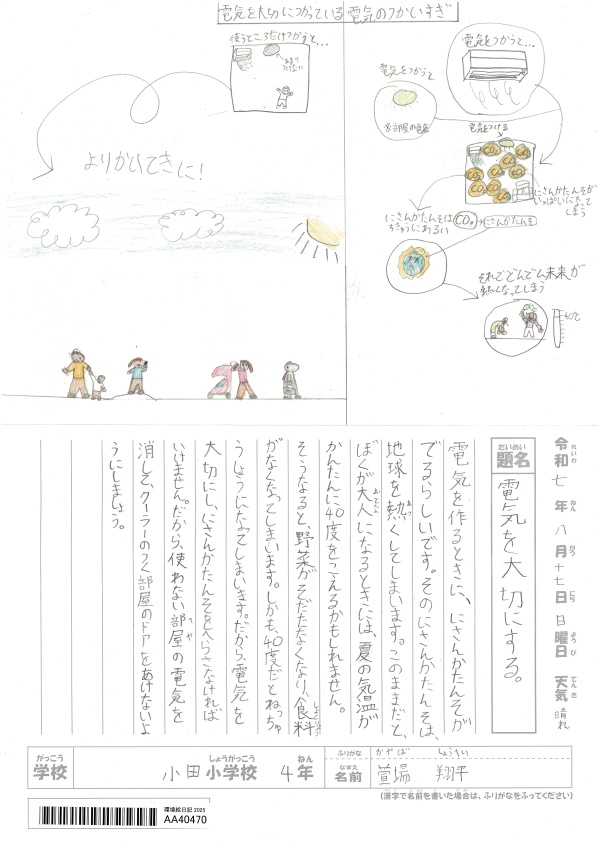 電気を大切につかっている
電気のつかいすぎ
使うところだけつかうと…
よりかいてきに!
電気をつかうと…
電気をつかうと
電気をつける
CO₂
にさんかたんそが
いっぱいになって
しまう
にさんかたんそは
ちきゅうにあるい
CO₂→にさんかたんそ
それでどんどん未来が
熱くなってしまう
40℃
令和七年八月十七日日曜日 天気 晴れ
れいわ ねん がつ にち ようび てんき
だいめい
題名
電気を大切にする。
電気を作るときに、にさんかたんそが
でるらしいです。そのにさんかたんそは、
地球を熱くしてしまいます。このままだと、
ぼくが大人になるときには、夏の気温が
かんたんに40度をこえるかもしれません。
そうなると、野菜がそだたなくなり、食料
がなくなってしまいます。しかも、40度だとねっちゅ
うしょうになってしまいます。だから電気を
大切にし、にさんかたんそをへらさなければ
いけません。だから、使わない部屋の電気を
消して、クーラーのつく部屋のドアをあけないよ
うにしましょう。
がっこう
学校
小田小学校 4年
しょうがっこう ねん
ふりがな かやば しょうへい
なまえ
名前 萱場 翔平
(漢字で名前を書いた場合は、ふりがなをふってください)
環境絵日記 2025
AA40470